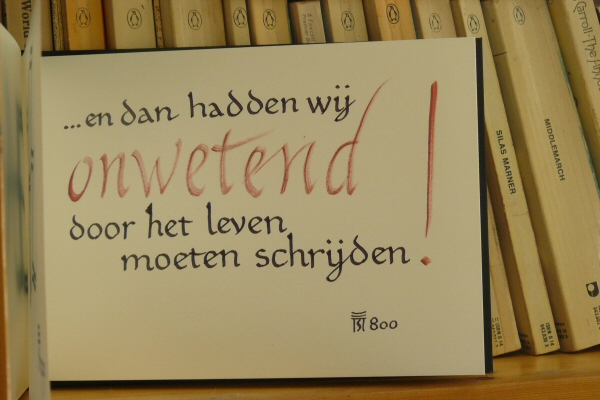 ...en dan hadden wij
onwetend !
door het leven
moeten schrijden
800
SILAS MARNER
MIDDLEMARCH